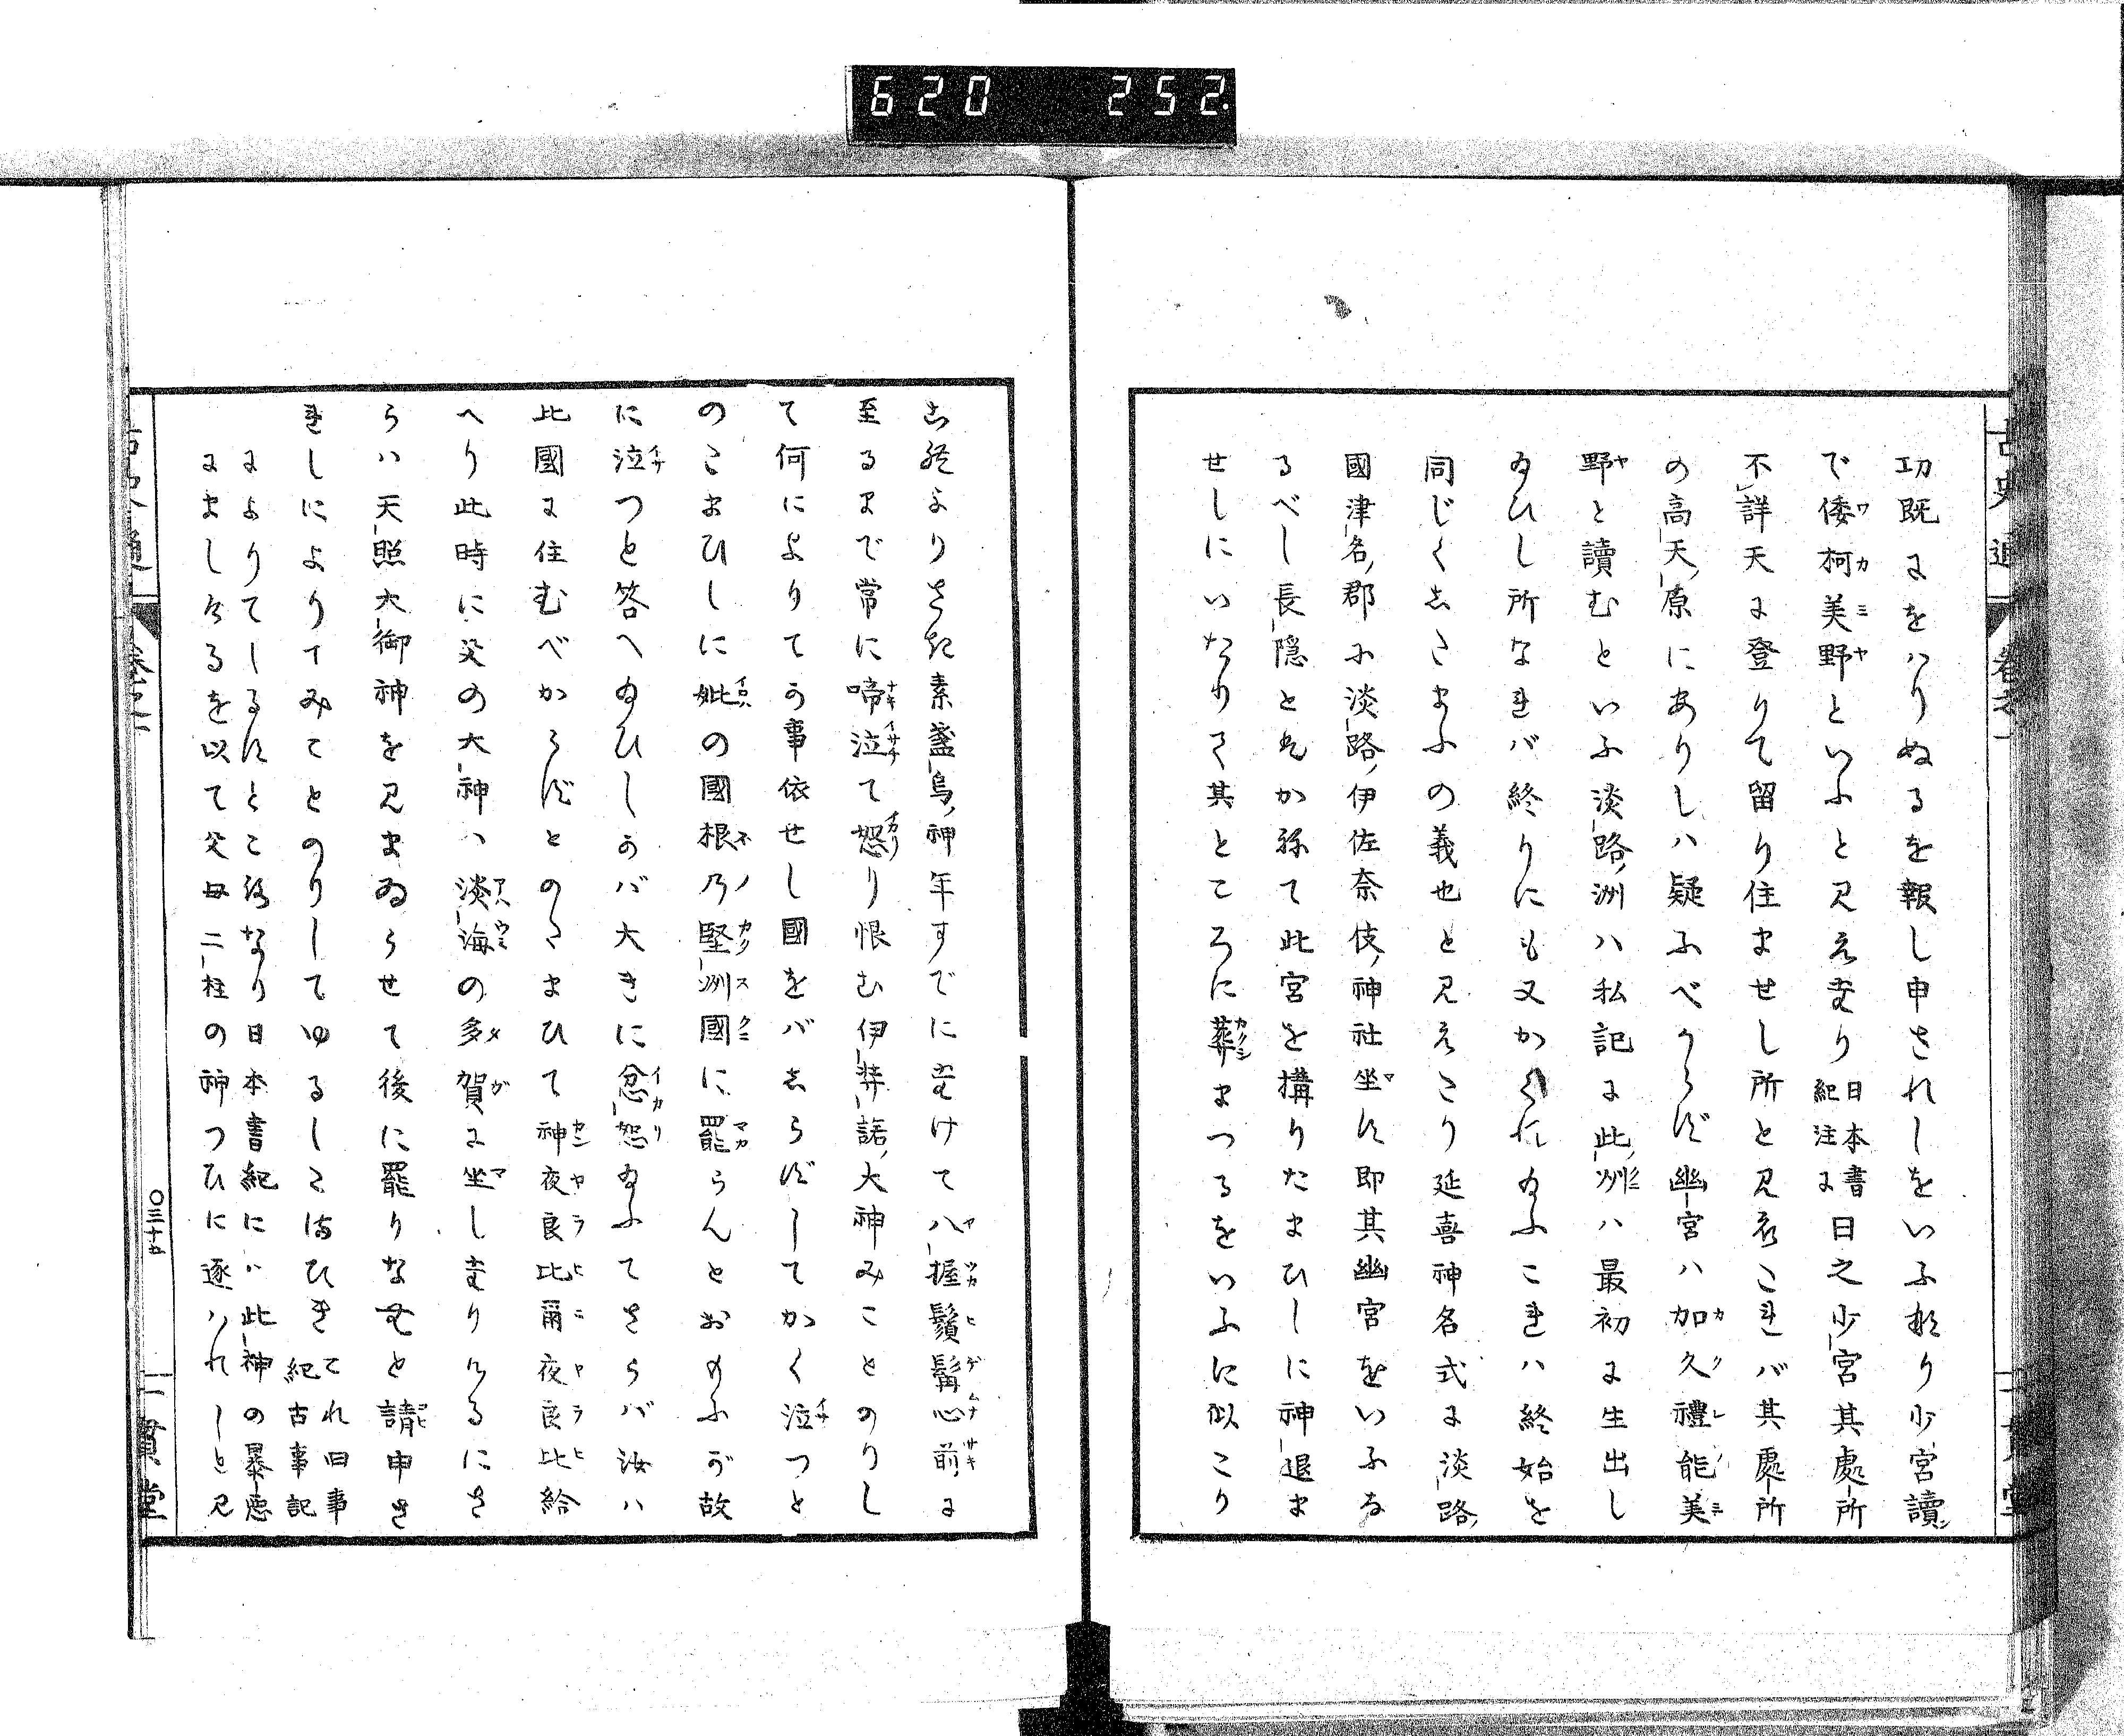 620 252
古史通 卷之一
功既にをハりぬるを報し申されしをいふ也り少宮讀
で倭柯美野といふと見えたり日本書紀注に曰之少宮其處所
不詳天に登りて留り住ませし所と見えこれバ其處所
の高天原にありしハ疑ふべからず幽宮ハ加久禮能美
野と讀むといふ淡路洲ハ私記に此洲ハ最初に生出し
給ひし所なれバ終りにも又かくれ給ふこれハ終始を
同じくしたまふの義也と見えたり延喜神名式に淡路
國津名郡に淡路伊佐奈伎神社坐す即其幽宮をいふな
るべし長隱と先かねて此宮を搆りたまひしに神退ま
せしにいたりて其ところに葬まつるをいふに似たり
是よりさき素盞烏神年すでにたけて八握鬚髯心前に
至るまで常に啼泣て怒り恨む伊弉諾大神みことのりし
て何によりてう事依せし國をバしらずしてかく泣つと
のたまひしに妣の國根乃堅洲國に罷らんとおもふが故
に泣つと答へ給ひしかバ大きに忿怒給ふてさらバ汝ハ
此國に住むべからずとのたまひて神夜良比爾夜良比給
へり此時に父の大神ハ淡海の多賀に坐したりけるにさ
らハ天照大御神を見まゐらせて後に罷りなむと請申さ
れしによりてみことのりしてゆるしたまひきこれ旧事紀古事記
によりてしるすところなり日本書紀にハ此神の暴惡
にましけるを以て父母二柱の神つひに逐ハれしと見
古史通 卷之一
〇三十五
一貫堂